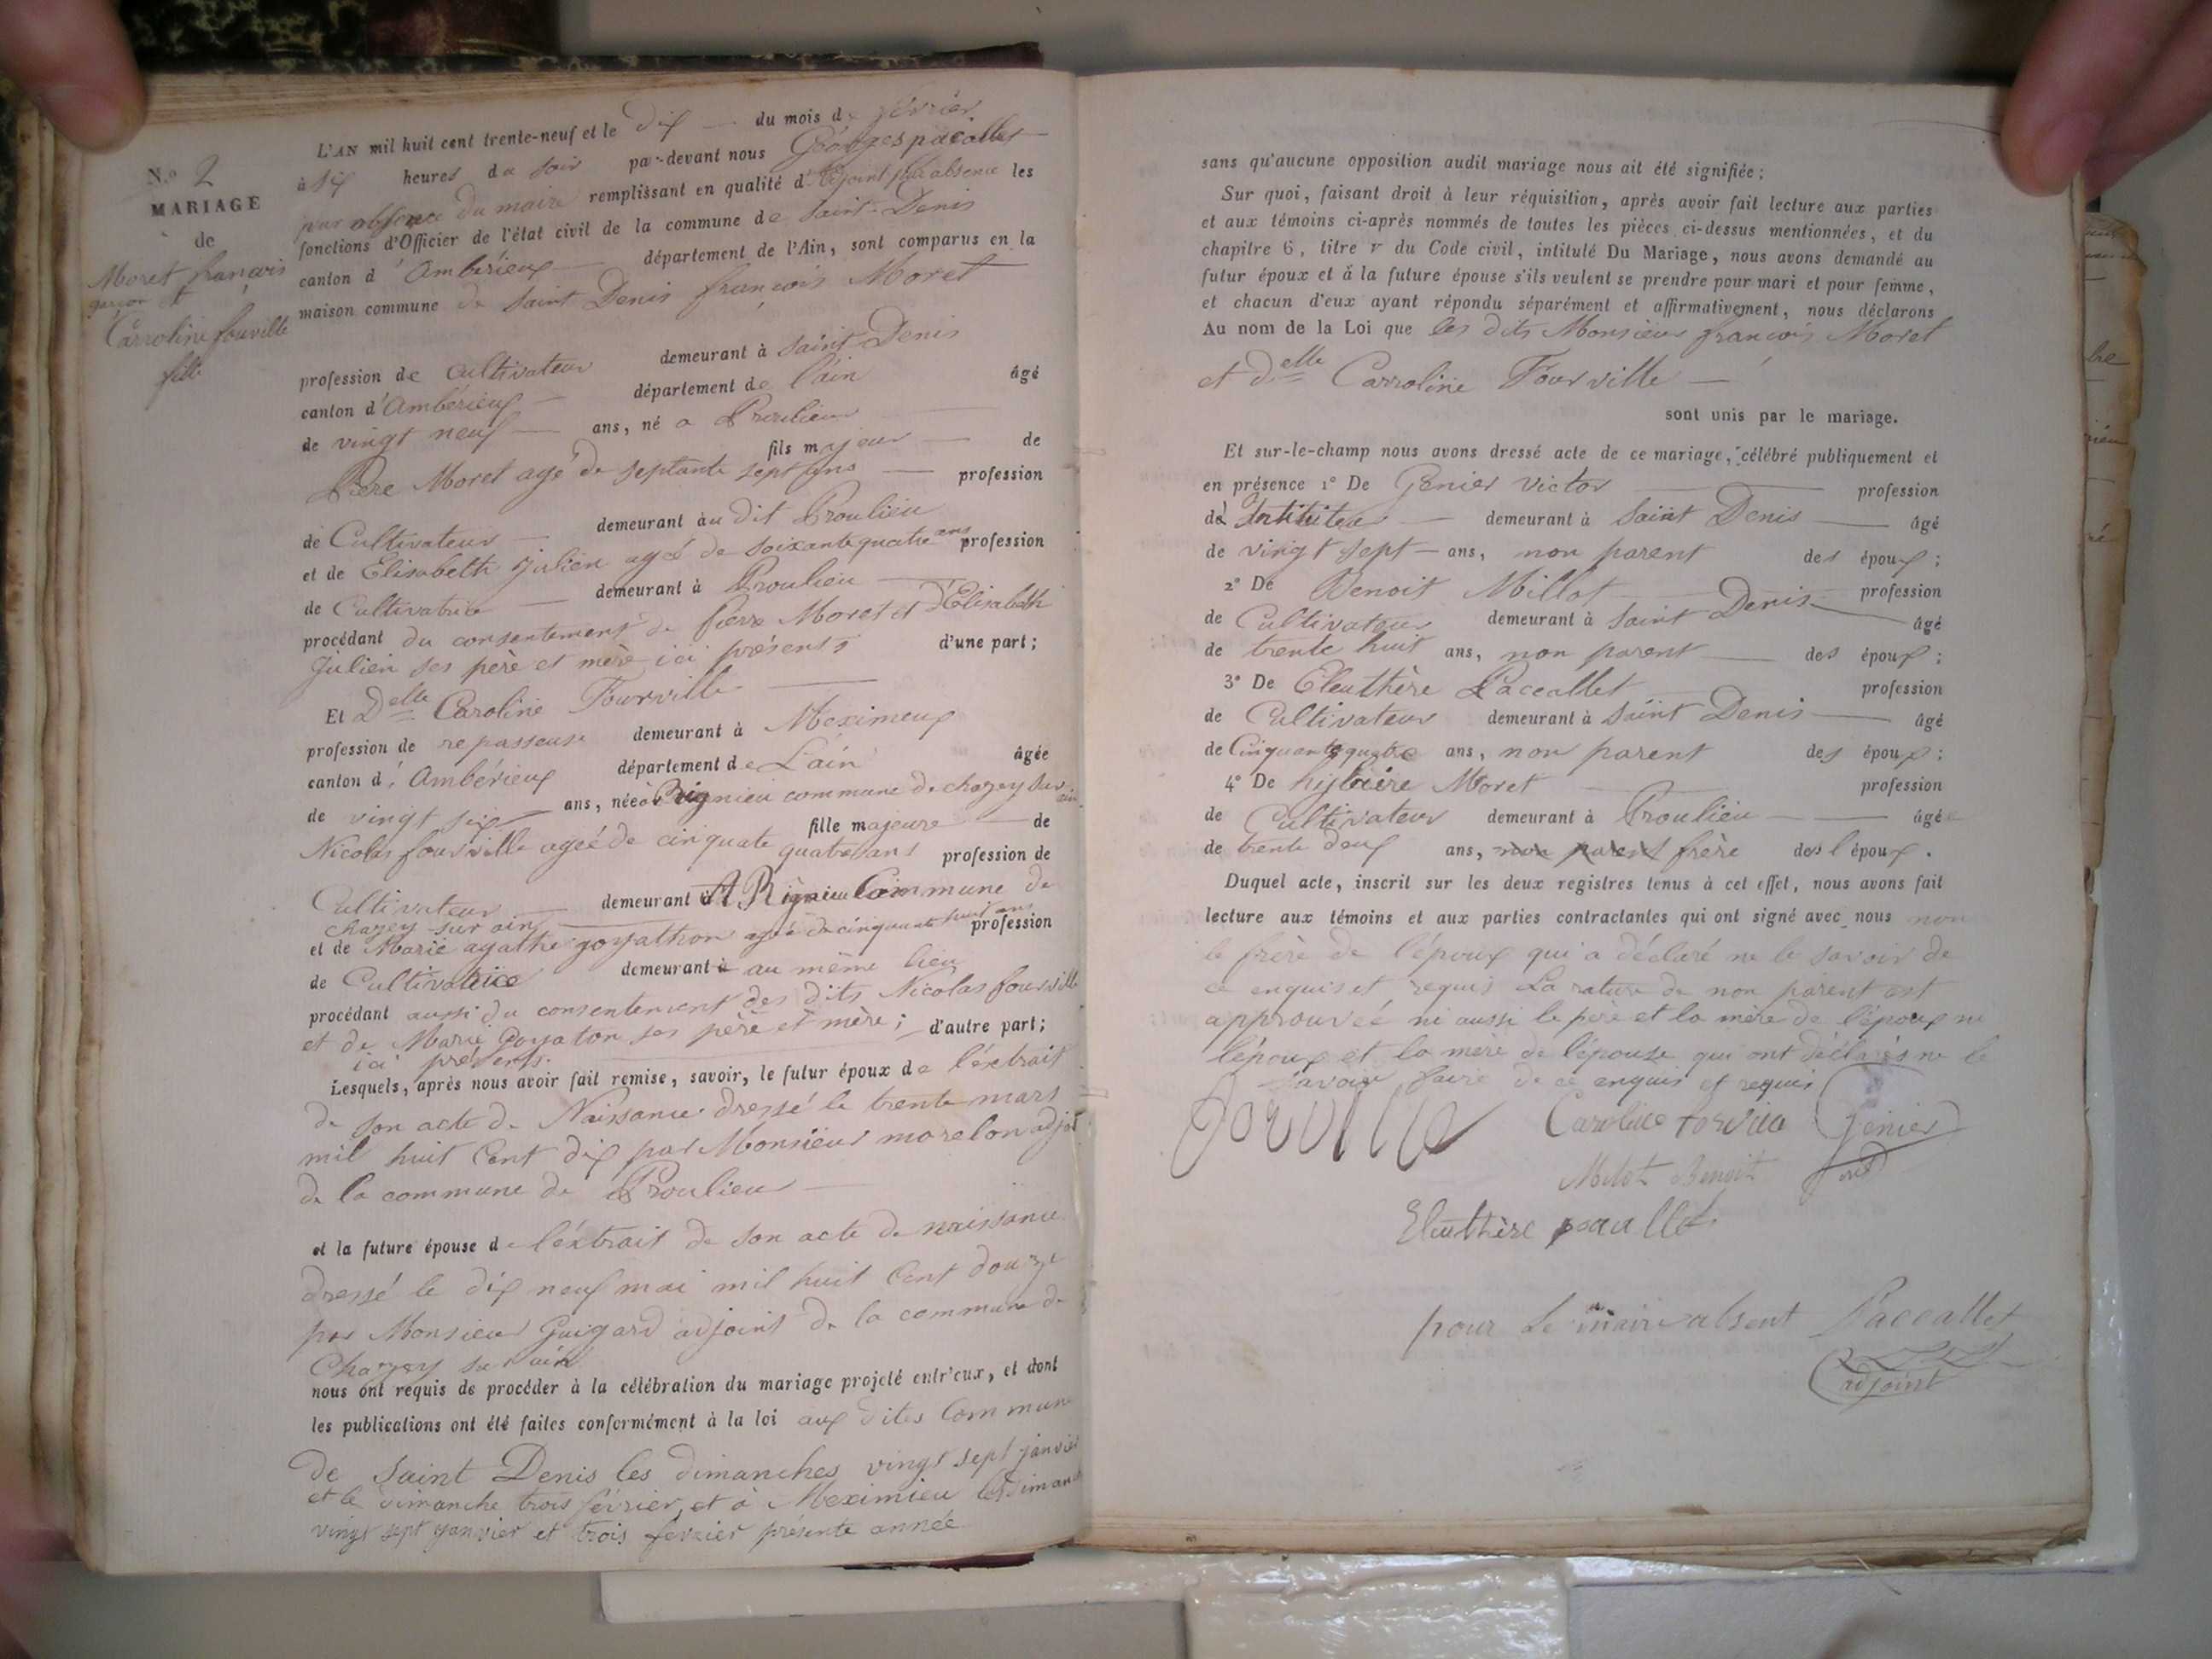 N.° 2
MARIAGE
de
Moret françois
garçon et
Carroline fourville
fille
L'AN mil huit cent trente-neuf et le dix du mois de février
à six heures du soir par-devant nous Géorges pacallet
par absence du maire remplissant en qualité d'Adjoint par absence les
fonctions d'Officier de l'état civil de la commune de Saint-Denis
canton d'Ambérieux département de l'Ain, sont comparus en la
maison commune de Saint Denis françois Moret
profession de Cultivateur demeurant à Saint-Denis
canton d'Ambérieux département de l'ain âgé
de vingt neuf ans, né a Proulieu
fils majeur de
Piere Moret agé de septante sept ans profession
de Cultivateur demeurant au dit Proulieu
et de Elisabeth Julien agé de soixante quatre ans profession
de Cultivatrice demeurant à Proulieu
procédant du consentement de Pierre Moret et d'Elisabeth
Julien ses père et mère ici présents d'une part;
Et Delle Caroline Fourville
profession de repasseuse demeurant à Meximeux
canton d'Ambérieux département de L'ain âgée
de vingt six ans, née à Rignieu commune de chazey sur ain
fille majeure de
Nicolas fourville ageé de cinquate quatre ans profession de
Cultivateur demeurant A Rignieu Commune de
chazey sur ain
et de Marie agathe goyathon ageé de cinquante huit ans profession
de Cultivatrice demeurant à au même lieu
procédant aussi du consentement des dits Nicolas fourville
et de Marie Goyaton ses père et mère; d'autre part;
ici présents.
Lesquels, après nous avoir fait remise, savoir, le futur époux de l'éxtrait
de son acte de Naissance dressé le trente mars
mil huit Cent dix par Monsieur morelon adjot
de la commune de Proulieu
et la future épouse de l'éxtrait de son acte de naissance
dressé le dix neuf mai mil huit Cent douze
par Monsieur Guigard adjoint de la commune de
Chazey sur ain
nous ont requis de procéder à la célébration du mariage projeté entr'eux, et dont
les publications ont été faites conformément à la loi aux dites Commune
de Saint Denis les dimanches vingt sept janvier
et le dimanche trois février, et à Meximieu les Dimanc
vingt sept janvier et trois fevrier présente année
sans qu'aucune opposition audit mariage nous ait été signifiée;
Sur quoi, faisant droit à leur réquisition, après avoir fait lecture aux parties
et aux témoins ci-après nommés de toutes les pièces ci-dessus mentionnées, et du
chapitre 6, titre v du Code civil, intitulé Du Mariage, nous avons demandé au
futur époux et à la future épouse s'ils veulent se prendre pour mari et pour femme,
et chacun d'eux ayant répondu séparément et affirmativement, nous déclarons
Au nom de la Loi que les dits Monsieur françois Moret
et Delle Carroline Fourville
sont unis par le mariage.
Et sur-le-champ nous avons dressé acte de ce mariage, célébré publiquement et
en présence 1° De Génier Victor profession
de Intituteur demeurant à Saint Denis âgé
de vingt sept ans, non parent des époux;
2° De Benoit Millot profession
de Cultivateur demeurant à Saint Denis âgé
de trente huit ans, non parent des époux;
3° De Eleuthère Paccallet profession
de Cultivateur demeurant à Saint Denis âgé
de Cinquante quatre ans, non parent des époux;
4° De Moret profession
de Cultivateur demeurant à Proulieu âgé
de trente deux ans, non parent frère des l'époux.
Duquel acte, inscrit sur les deux registres tenus à cet effet, nous avons fait
lecture aux témoins et aux parties contractantes qui ont signé avec nous non
le frère de l'époux qui a déclaré ne le savoir de
ce enquis et requis La rature de non parent est
approuveé ni aussi le père et la mère de l'époux ni
l'époux et la mère de l'épouse qui ont déclarés ne le
savoir faire de ce enquis et requis
Forville Caroline Génier
Milot Benoit
Eleuthère pacallet
pour Le maire absent Paccallet
adjoint